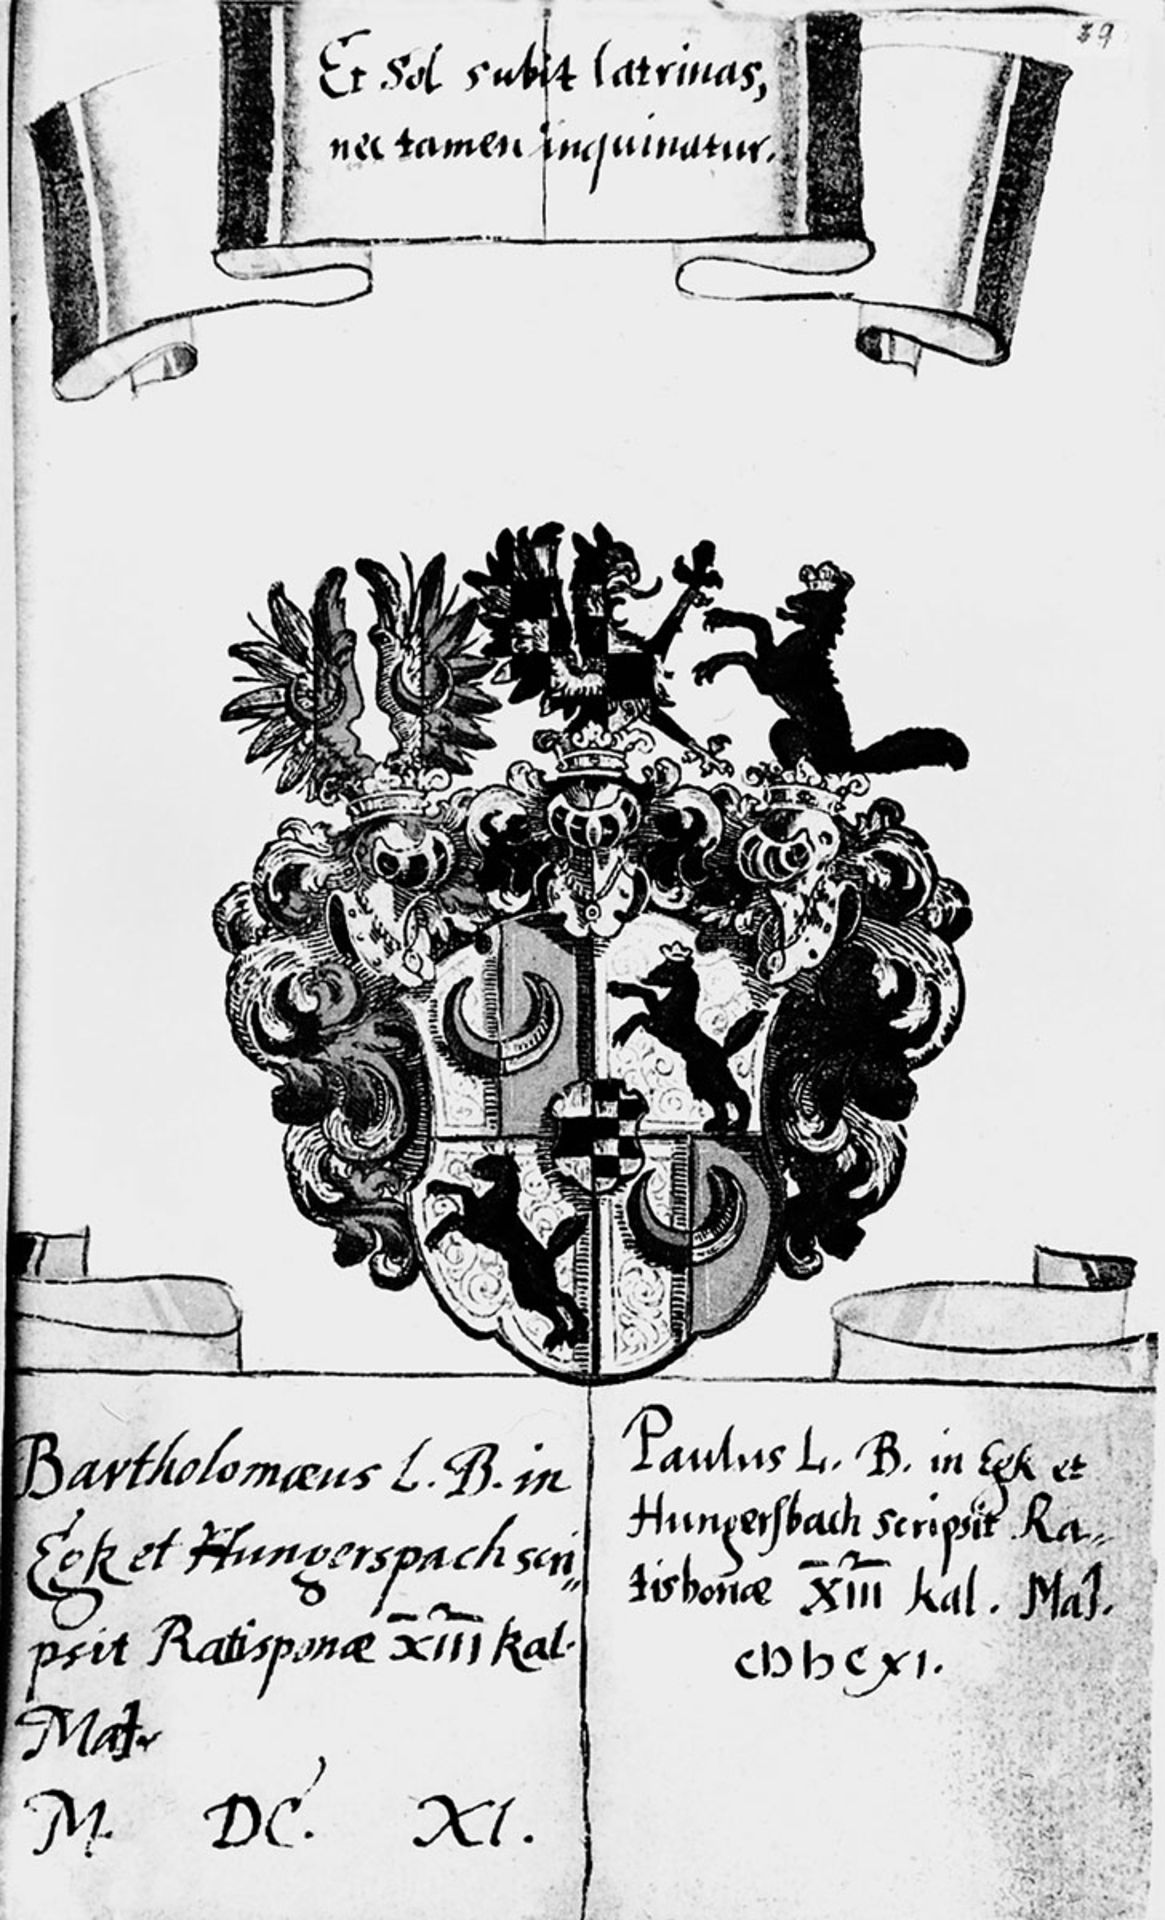 39
Et Sol subit latrinas,
nec tamen inquinatur.
Bartholomæus L. B. in
Egk et Hungerspach scri„
psit Ratisponæ XIII kal.
Maj.
M. DC. XI.
Paulus L. B. in Egk et
Hungerſbach scripsit Ra„
tisbonæ XIII kal. Maj.
cIↃ IↃ c XI.